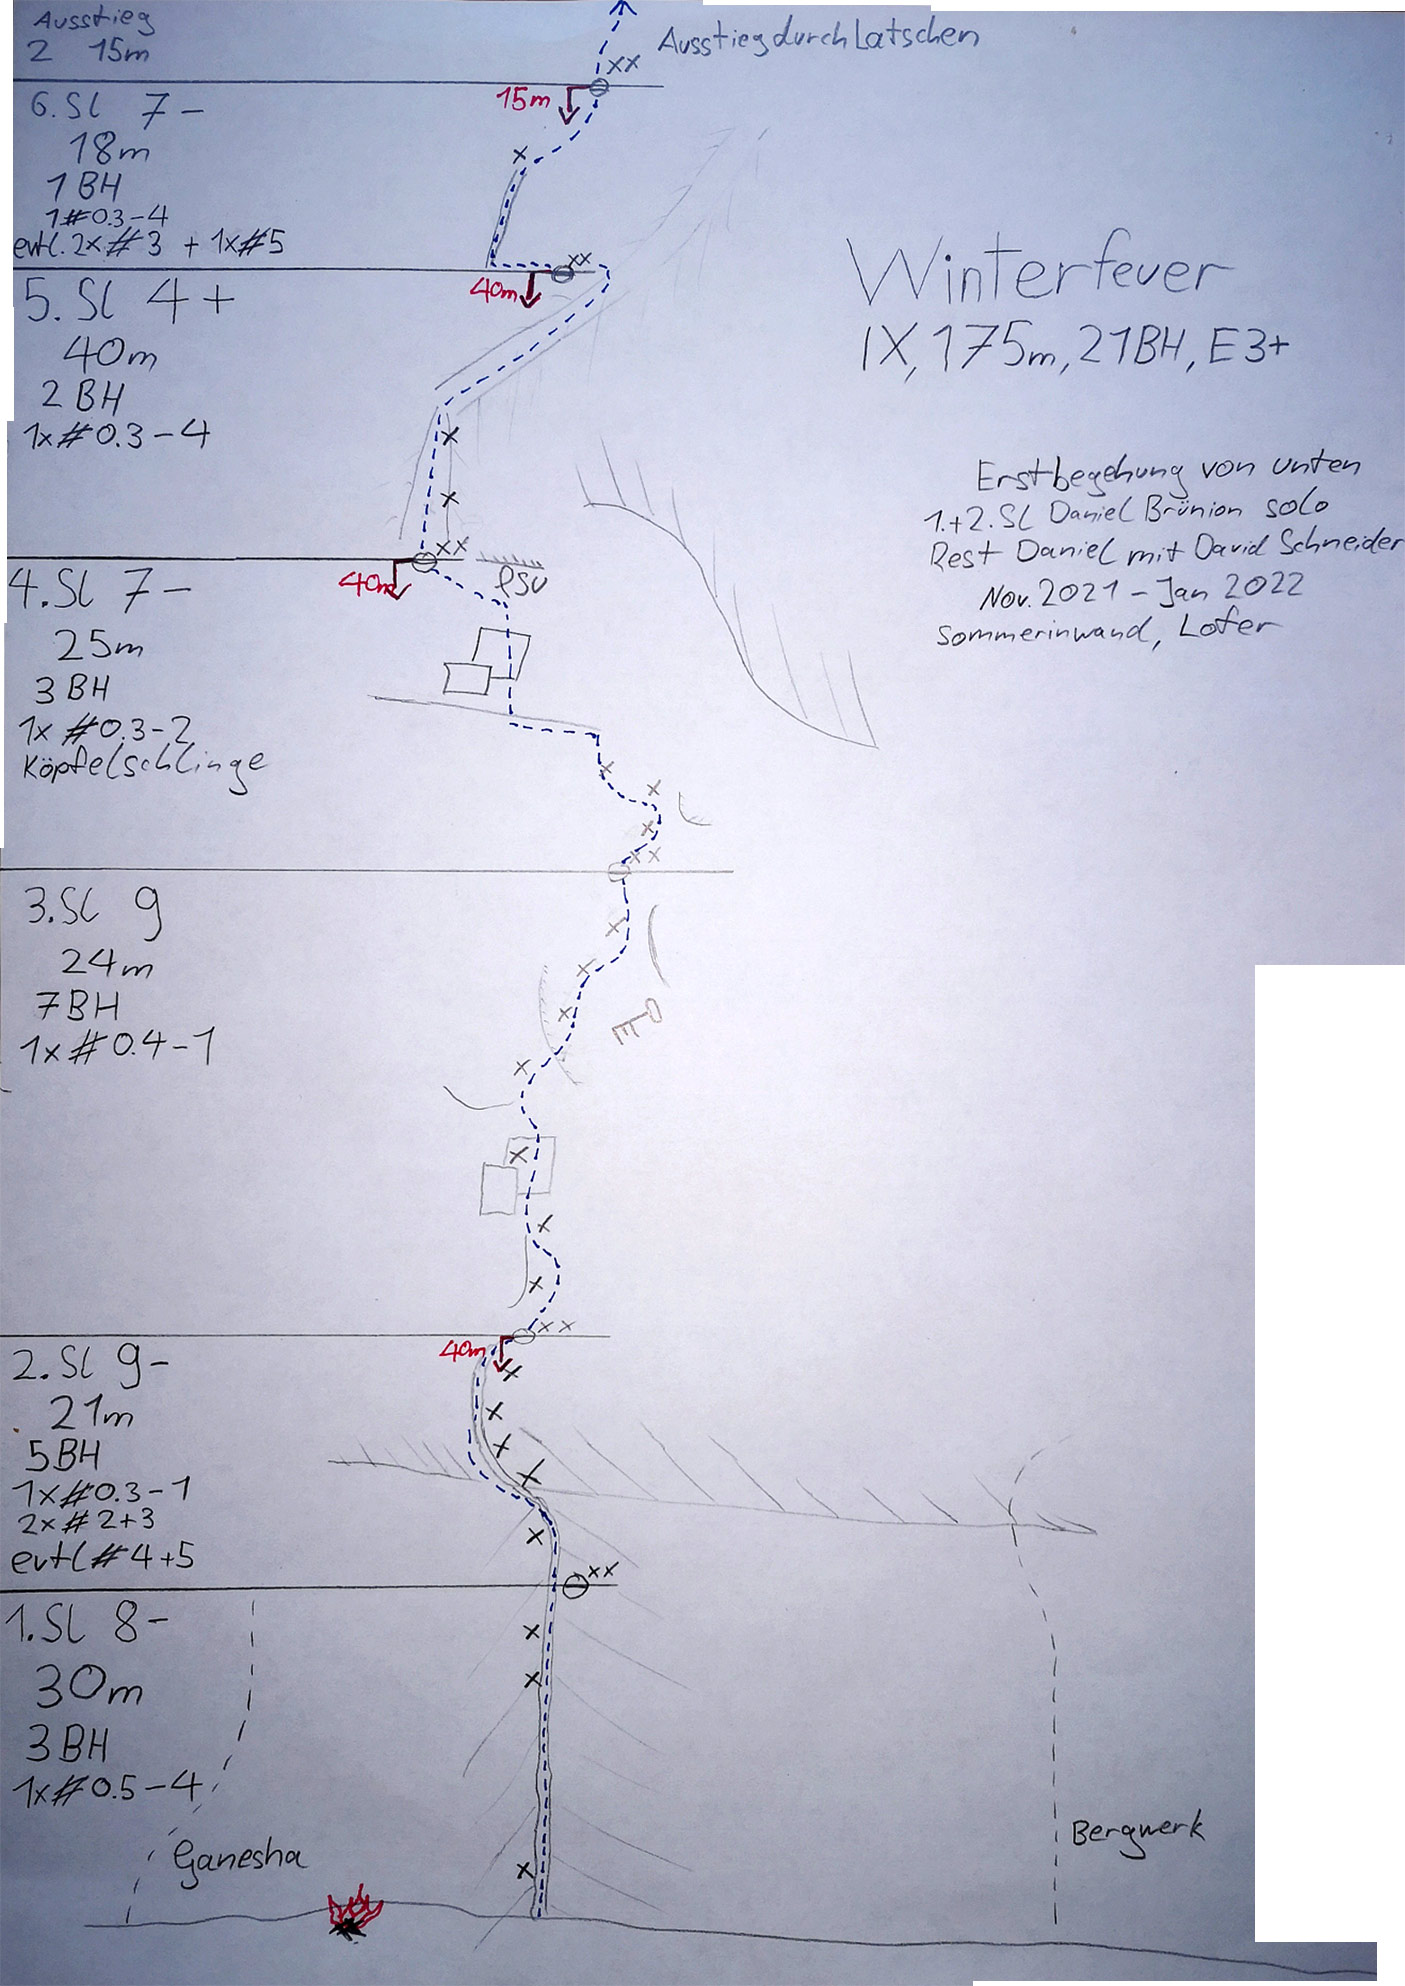 Ausstieg
2 15m
Ausstieg durch Latschen
xx
15m
6. SL 7-
18m
1 BH
1#0.3-4
evtl. 2x#3 + 1x#5
xx
40m
5. SL 4+
40m
2 BH
1x#0.3-4
Winterfeuer
IX, 175m, 21BH, E3+
Erstbegehung von unten
1.+2. SL Daniel Brünion solo
Rest Daniel mit David Schneider
Nov. 2021 - Jan 2022
Sommerinwand, Lofer
xx
40m
4. SL 7-
25m
3 BH
1x #0.3-2
Köpfelschlinge
xx
3. SL 9
24m
7BH
1x#0.4-1
xx
40m
2. SL 9-
21m
5BH
1x#0.3-1
2x#2+3
evtl #4+5
xx
1. SL 8-
30m
3BH
1x#0.5-4
Ganesha
Bergwerk